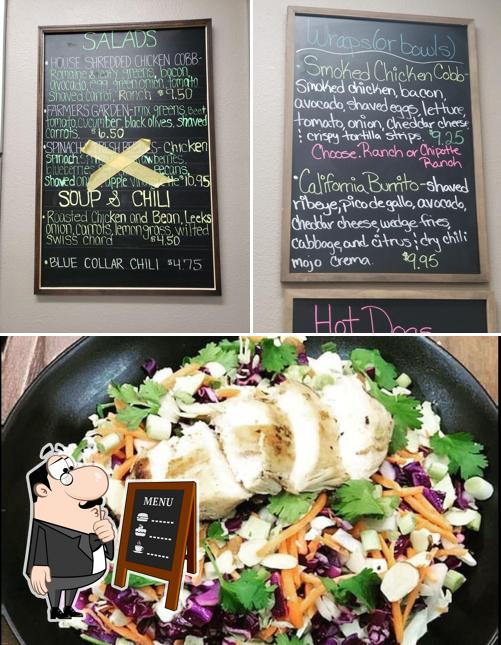 SALADS
• HOUSE SHREDDED CHICKEN COBB-
Romaine & leafy greens, bacon,
avocado, egg, green onion, tomato
shaved carrot, Ranch $9.50
• FARMERS GARDEN-mix greens, Beet
tomato, cucumber, black olives, shaved
carrots. $6.50
• SPINACH Chicken
spinach,
blueberries pecans,
shaved $10.95
SOUP & CHILI
• Roasted Chicken and Bean, Leeks
onion, carrots, lemongrass, wilted
swiss chard $4.50
• BLUE COLLAR CHILI $4.75
Wraps (or bowls)
• Smoked Chicken Cobb-
Smoked chicken, bacon,
avocado, shaved eggs, lettuce,
tomato, onion, cheddar cheese
; crispy tortilla strips $9.25
Choose. Ranch or Chipotle
Ranch
• California Burrito-shaved
ribeye, pico de gallo, avocado,
cheddar cheese, wedge fries,
cabbage, and citrus ; dry chili
mojo crema. $9.95
Hot Dogs
MENU